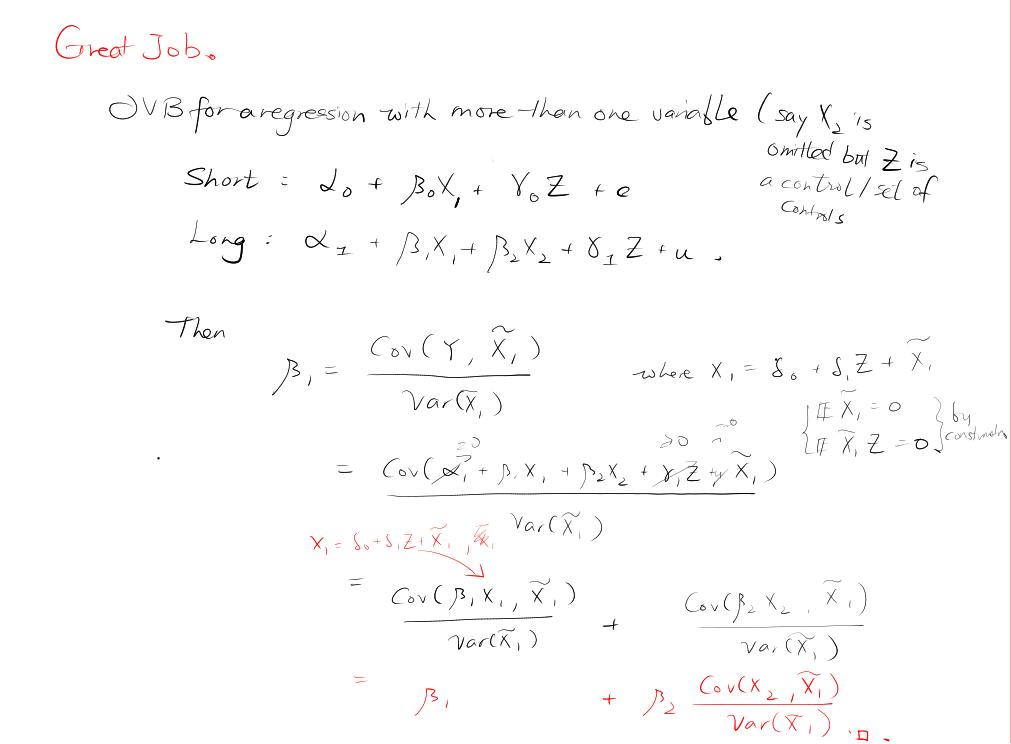 Great Job.
OVB for a regression with more than one variable (say X₂ is
omitted but Z is
a control / set of
controls
Short : α₀ + β₀X₁ + γ₀Z + e
Long : α₁ + β₁X₁ + β₂X₂ + γ₁Z + u .
Then
β₁ = Cov(Y, X̃₁) / Var(X̃₁) where X₁ = δ₀ + δ₁Z + X̃₁
E X̃₁ = 0
E X̃₁ Z = 0 } by
= Cov(α₁ + β₁X₁ + β₂X₂ + γ₁Z + u, X̃₁) / Var(X̃₁)
=0 =0 =0
X₁ = δ₀ + δ₁Z + X̃₁ ,
= Cov(β₁X₁, X̃₁) / Var(X̃₁) + Cov(β₂X₂, X̃₁) / Var(X̃₁)
= β₁ + β₂ Cov(X₂, X̃₁) / Var(X̃₁) . □ .